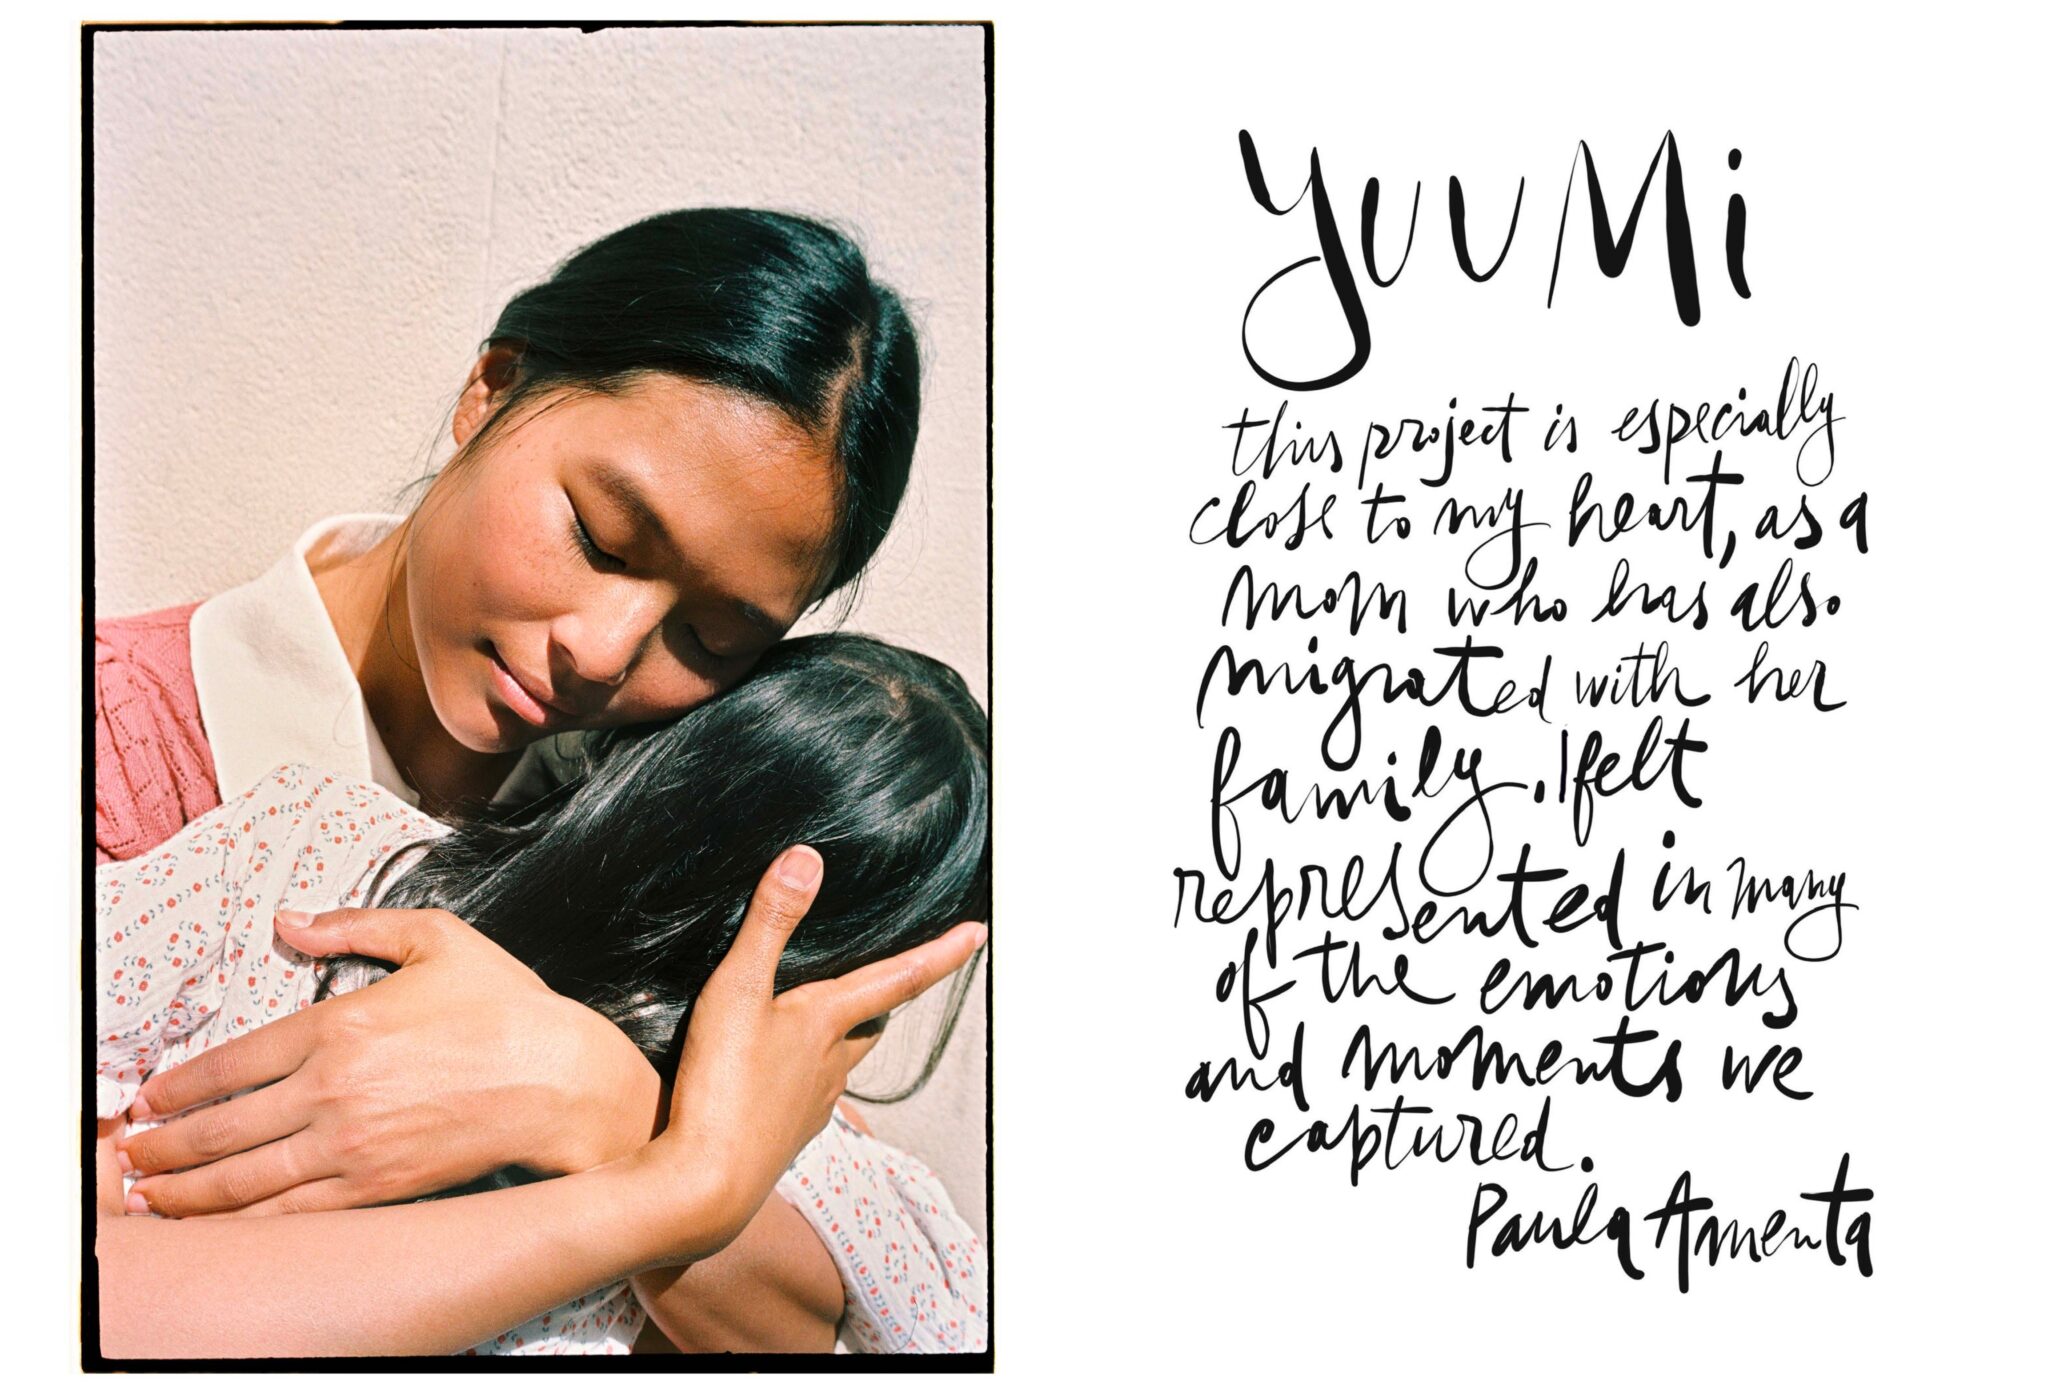 YUU Mi
this project is especially
close to my heart, as a
mom who has also
migrated with her
family. I felt
represented in many
of the emotions
and moments we
captured.
Paula Amenta